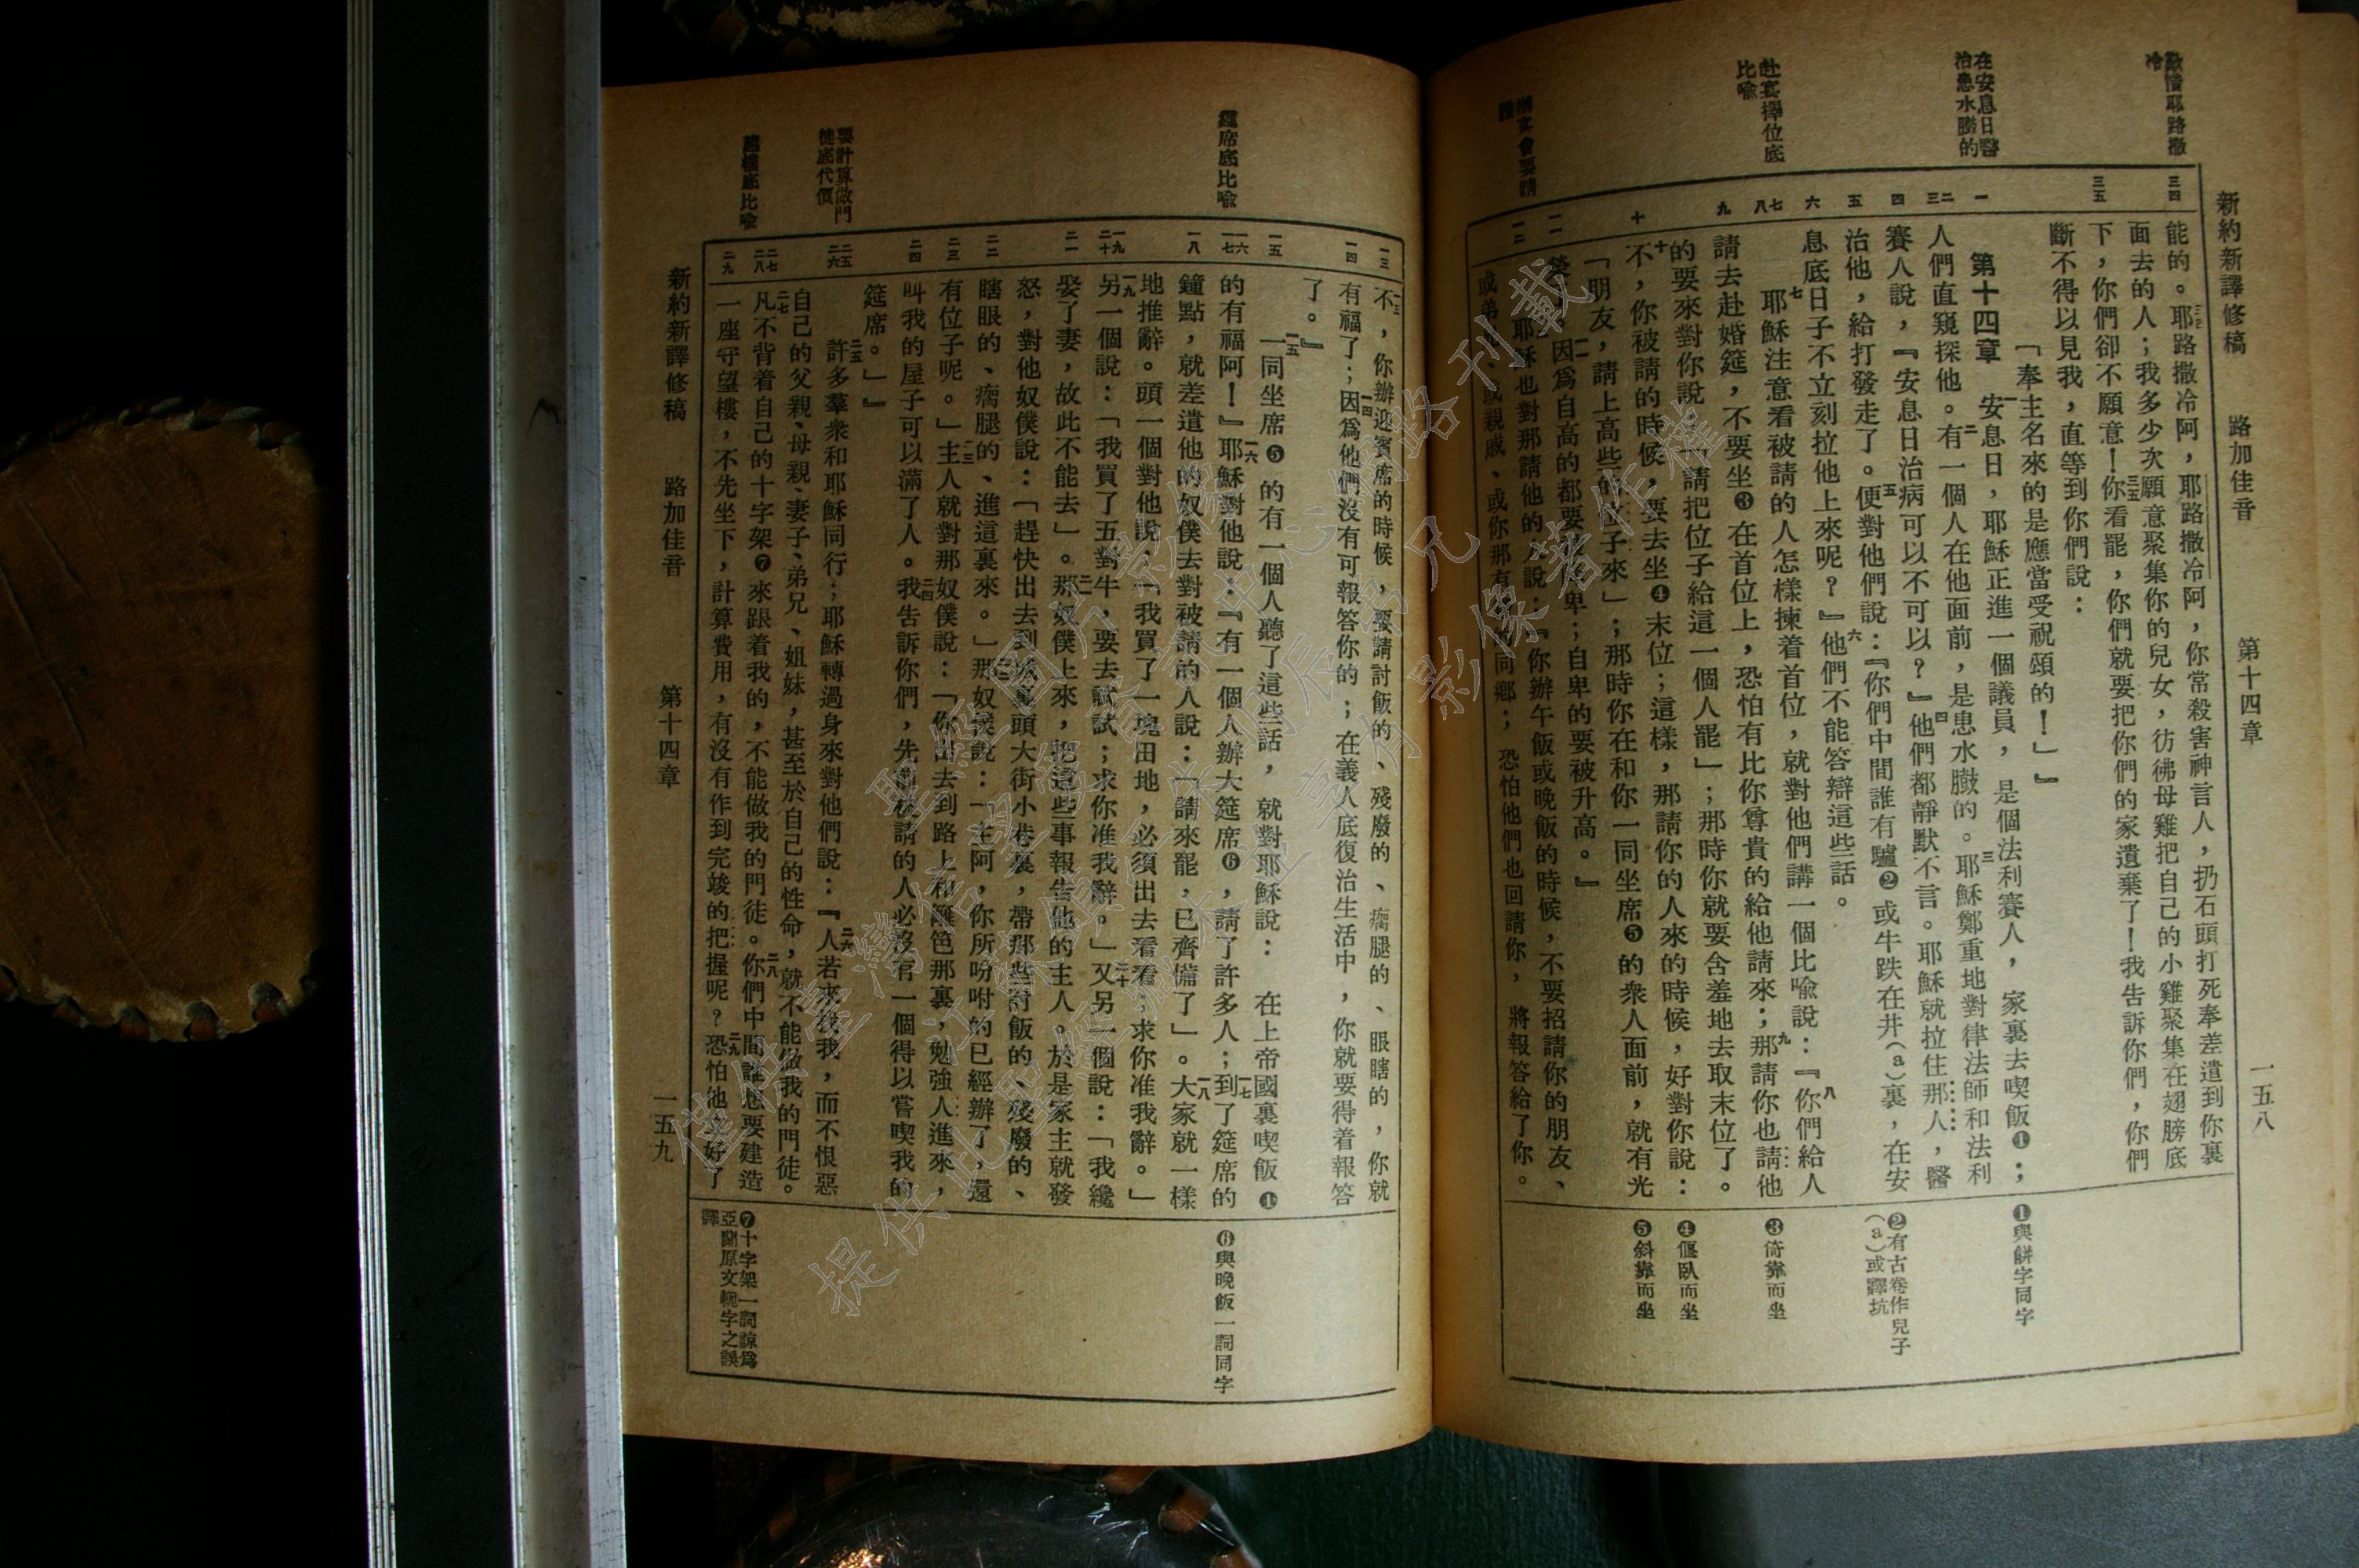 新約新譯修稿　路加佳音　第十四章　一五八
歎惜耶路撒
冷
在安息日醫
治患水臌的
赴宴擇位底
比喻
三四
三五
一
二
三
四
五
六
七
八
九
十
一一
一二
能的。三四耶路撒冷阿，耶路撒冷阿，你常殺害神言人，扔石頭打死奉差遣到你裏
面去的人；我多少次願意聚集你的兒女，彷彿母雞把自己的小雞聚集在翅膀底
下，你們卻不願意！三五你看罷，你們就要把你們的家遺棄了！我告訴你們，你們
斷不得以見我，直等到你們說：
「奉主名來的是應當受祝頌的！」』
第十四章　一安息日，耶穌正進一個議員，是個法利賽人，家裏去喫飯❶；
人們直窺探他。二有一個人在他面前，是患水臌的。三耶穌鄭重地對律法師和法利
賽人說，『安息日治病可以不可以？』四他們都靜默不言。耶穌就拉住那人，醫
治他，給打發走了。五便對他們說：『你們中間誰有驢❷或牛跌在井（a）裏，在安
息底日子不立刻拉他上來呢？』六他們不能答辯這些話。
七耶穌注意看被請的人怎樣揀着首位，就對他們講一個比喻說：八『你們給人
請去赴婚筵，不要坐❸在首位上，恐怕有比你尊貴的給他請來；九那請你也請他
的要來對你說：「請把位子給這一個人罷」；那時你就要含羞地去取末位了。
十不，你被請的時候，要去坐❹末位；這樣，那請你的人來的時候，好對你說：
「朋友，請上高些的位子來」；那時你在和你一同坐席❺的衆人面前，就有光
因爲自高的都要卑；自卑的要被升高。』
耶穌也對那請他的人說：『你辦午飯或晚飯的時候，不要招請你的朋友、
或弟兄、或親戚、或你那有同鄉；恐怕他們也回請你，將報答給了你。
❶與餅字同字
❷有古卷作兒子
（a）或譯坑
❸倚靠而坐
❹偃臥而坐
❺斜靠而坐
筵席底比喻
要計算做門
徒底代價
建樓底比喻
一三
一四
一五
一六
一七
一八
一九
二十
二一
二二
二三
二四
二五
二六
二七
二八
二九
一三不，你辦迎賓席的時候，要請討飯的、殘廢的、瘸腿的、眼瞎的，你就
有福了；一四因爲他們沒有可報答你的；在義人底復活生活中，你就要得着報答
了。』
一五一同坐席❺的有一個人聽了這些話，就對耶穌說：在上帝國裏喫飯❶
的有福阿！』一六耶穌對他說：『有一個人辦大筵席❻，請了許多人；一七到了筵席的
鐘點，就差遣他的奴僕去對被請的人說：「請來罷，已齊備了」。一八大家就一樣
地推辭。頭一個對他說：「我買了一塊田地，必須出去看看；求你准我辭。」
一九另一個說：「我買了五對牛，要去試試；求你准我辭。」二十又另一個說：「我纔
娶了妻，故此不能去」。二一那奴僕上來，把這些事報告他的主人。於是家主就發
怒，對他奴僕說：「趕快出去到城裏頭大街小巷裏，帶那些討飯的、殘廢的、
瞎眼的、瘸腿的、進這裏來。」二二那奴僕說：「主阿，你所吩咐的已經辦了，還
有位子呢。」二三主人就對那奴僕說：「你出去到路上和籬笆那裏，勉強人進來，
叫我的屋子可以滿了人。二四我告訴你們，先前被請的人必沒有一個得以嘗喫我的
筵席。」』
二五許多羣衆和耶穌同行；耶穌轉過身來對他們說：二六『人若來找我，而不恨惡
自己的父親、母親、妻子、弟兄、姐妹，甚至於自己的性命，就不能做我的門徒。
二七凡不背着自己的十字架❼來跟着我的，不能做我的門徒。二八你們中間誰想要建造
一座守望樓，不先坐下，計算費用，有沒有作到完竣的把握呢？二九恐怕他安好了
❻與晚飯一詞同字
❼十字架一詞諒爲
亞蘭原文軛字之誤
譯
新約新譯修稿　路加佳音　第十四章　一五九
僅供臺灣信望愛資訊中心網路刊載
提供此聖經